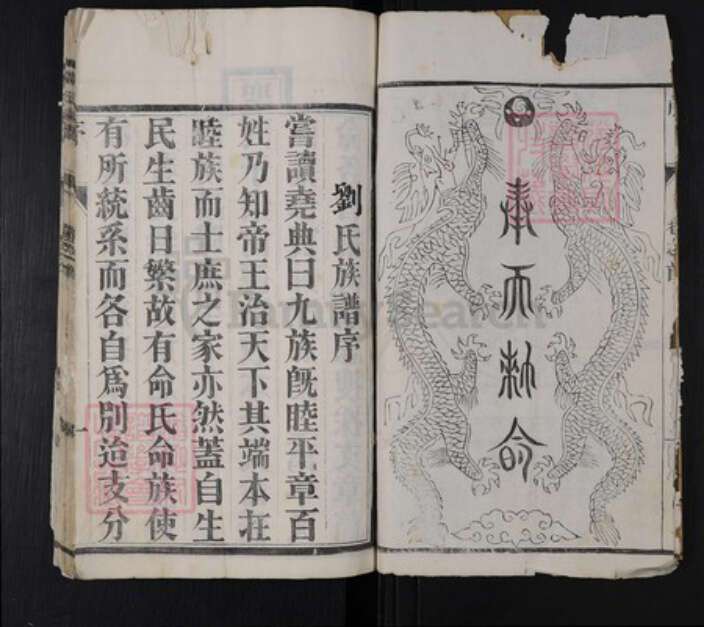 奉天敕命
劉氏族譜序
嘗讀堯典曰九族旣睦平章百
姓乃知帝王治天下其端本在
睦族而士庶之家亦然蓋自生
民生齒日繁故有命氏命族使
有所統系而各自爲別迨支分
FamilySearch